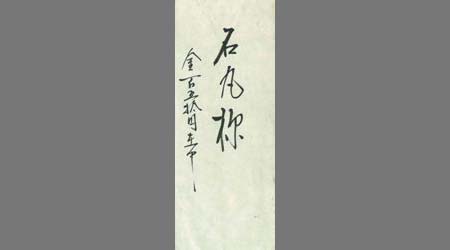 石丸様
金百五拾円